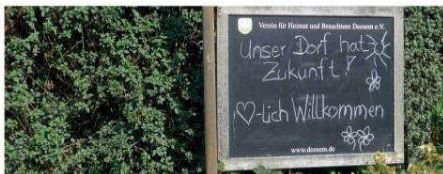 Verein für Heimat und Brauchtum Doesem e.V.
Unser Dorf hat
Zukunft!
♡-lich Willkommen
www.doesem.de